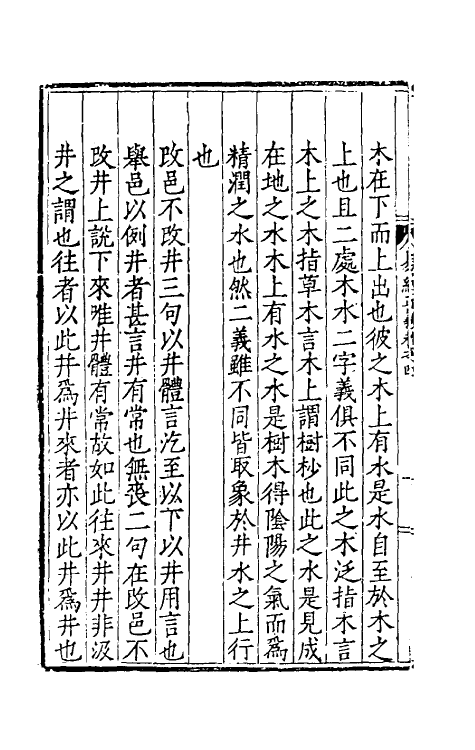 木在下而上出也彼之木上有水是水自至於木之
上也且二處木水二字義俱不同此之木泛指木言
木上之木指草木言木上謂樹杪也此之水是見成
在地之水木上有水之水是樹木得陰陽之氣而為
精潤之水也然二義雖不同皆取象於井水之上行
也
改邑不改井三句以井體言汔至以下以井用言也
舉邑以例井者甚言井有常也無喪二句在改邑不
改井上說下來唯井體有常故如此往來井井非汲
井之謂也往者以此井爲井來者亦以此井爲井也